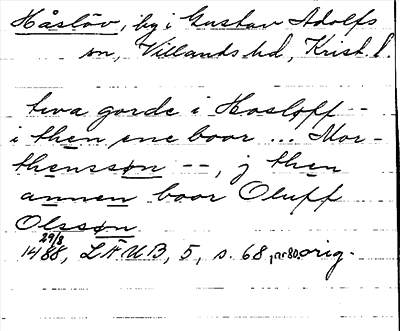 Håslöv, by i Gustav Adolfs
sn, Villands hd, Krist. l.
twa gorde i Hosloff --
i then ene boor ... Mor-
thensson --, j then
annen boor Oluff
Olsson
29/8
1488, LÄUB, 5, s. 68, nr 80. orig.